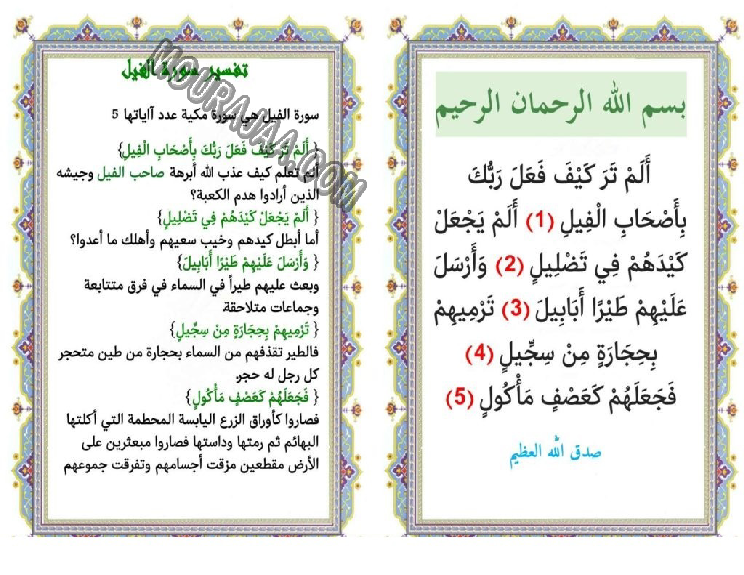 بسم الله الرحمان الرحيم
أَلَمْ تَرَ كَيْفَ فَعَلَ رَبُّكَ
بِأَصْحَابِ الْفِيلِ (1) أَلَمْ يَجْعَلْ
كَيْدَهُمْ فِي تَضْلِيلٍ (2) وَأَرْسَلَ
عَلَيْهِمْ طَيْرًا أَبَابِيلَ (3) تَرْمِيهِمْ
بِحِجَارَةٍ مِنْ سِجِّيلٍ (4)
فَجَعَلَهُمْ كَعَصْفٍ مَأْكُولٍ (5)
صدق الله العظيم
تفسير سورة الفيل
سورة الفيل هي سورة مكية عدد آاياتها 5
{ أَلَمْ تَرَ كَيْفَ فَعَلَ رَبُّكَ بِأَصْحَابِ الْفِيلِ}
ألم تعلم كيف عذب الله أبرهة صاحب الفيل وجيشه
الذين أرادوا هدم الكعبة؟
{ أَلَمْ يَجْعَلْ كَيْدَهُمْ فِي تَضْلِيلٍ}
أما أبطل كيدهم وخيب سعيهم وأهلك ما أعدوا؟
{ وَأَرْسَلَ عَلَيْهِمْ طَيْرًا أَبَابِيلَ}
وبعث عليهم طيراً في السماء في فرق متتابعة
وجماعات متلاحقة.
{ تَرْمِيهِمْ بِحِجَارَةٍ مِنْ سِجِّيلٍ}
فالطير تقذفهم من السماء بحجارة من طين متحجر
كل رجل له حجر.
{ فَجَعَلَهُمْ كَعَصْفٍ مَأْكُولٍ}
فصاروا كأوراق الزرع اليابسة المحطمة التي أكلتها
البهائم ثم رمتها وداستها فصاروا مبعثرين على
الأرض مقطعين مزقت أجسامهم وتفرقت جموعهم
MOURAJAA.COM